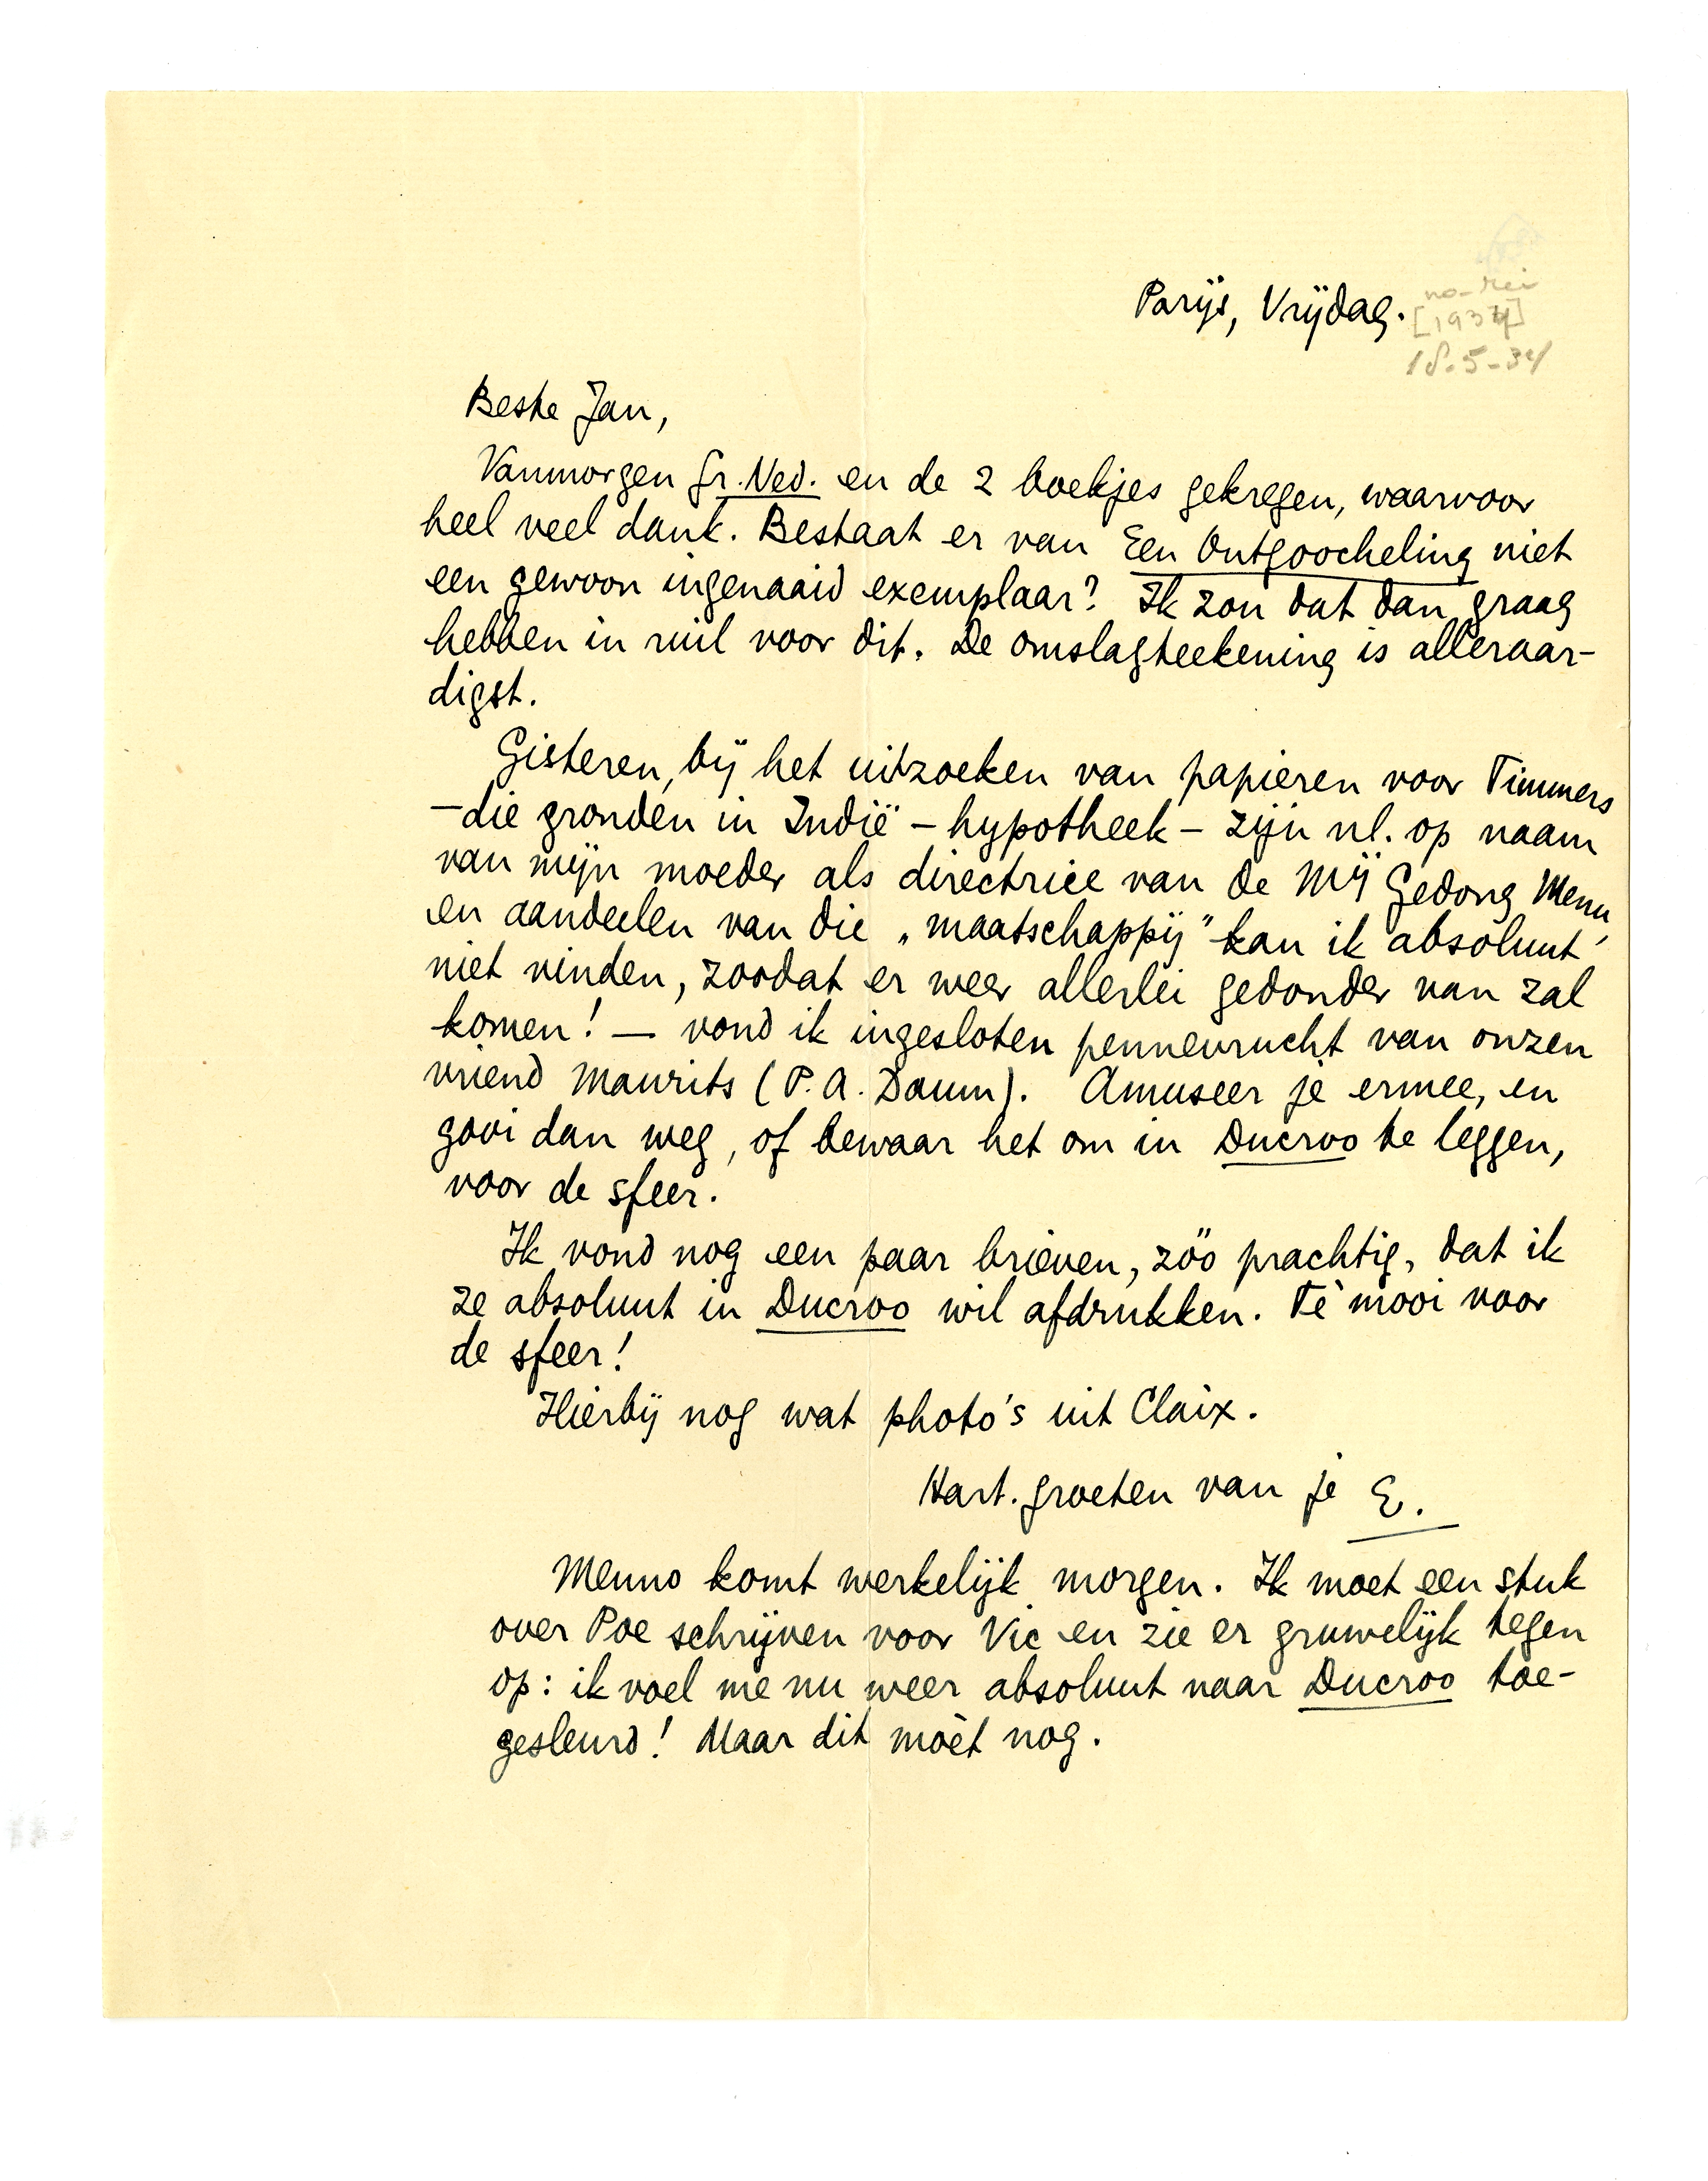 Parijs, Vrijdag.
[1934]
18.5-34
Beste Jan,
Vanmorgen Gr. Ned. en de 2 boekjes gekregen, waarvoor
heel veel dank. Bestaat er van Een Ontgoocheling niet
een gewoon ingenaaid exemplaar? Ik zou dat dan graag
hebben in ruil voor dit. De omslagteekening is alleraar-
digst.
Gisteren, bij het uitzoeken van papieren voor Timmers
– die gronden in Indië – hypotheek – zijn nl. op naam
van mijn moeder als directrice van de Mij Gedong Menu,
en aandeelen van die „maatschappij” kan ik absoluut
niet vinden, zoodat er weer allerlei gedonder van zal
komen! – vond ik ingesloten pennevrucht van onzen
vriend Maurits (P. A. Daum). Amuseer je ermee, en
gooi dan weg, of bewaar het om in Ducroo te leggen,
voor de sfeer.
Ik vond nog een paar brieven, zóó prachtig, dat ik
ze absoluut in Ducroo wil afdrukken. Té mooi voor
de sfeer!
Hierbij nog wat photo's uit Claix.
Hart. groeten van je E.
Menno komt werkelijk morgen. Ik moet een stuk
over Poe schrijven voor Vic en zie er gruwelijk tegen
op: ik voel me nu weer absoluut naar Ducroo toe-
gesleurd! Maar dit mòet nog.